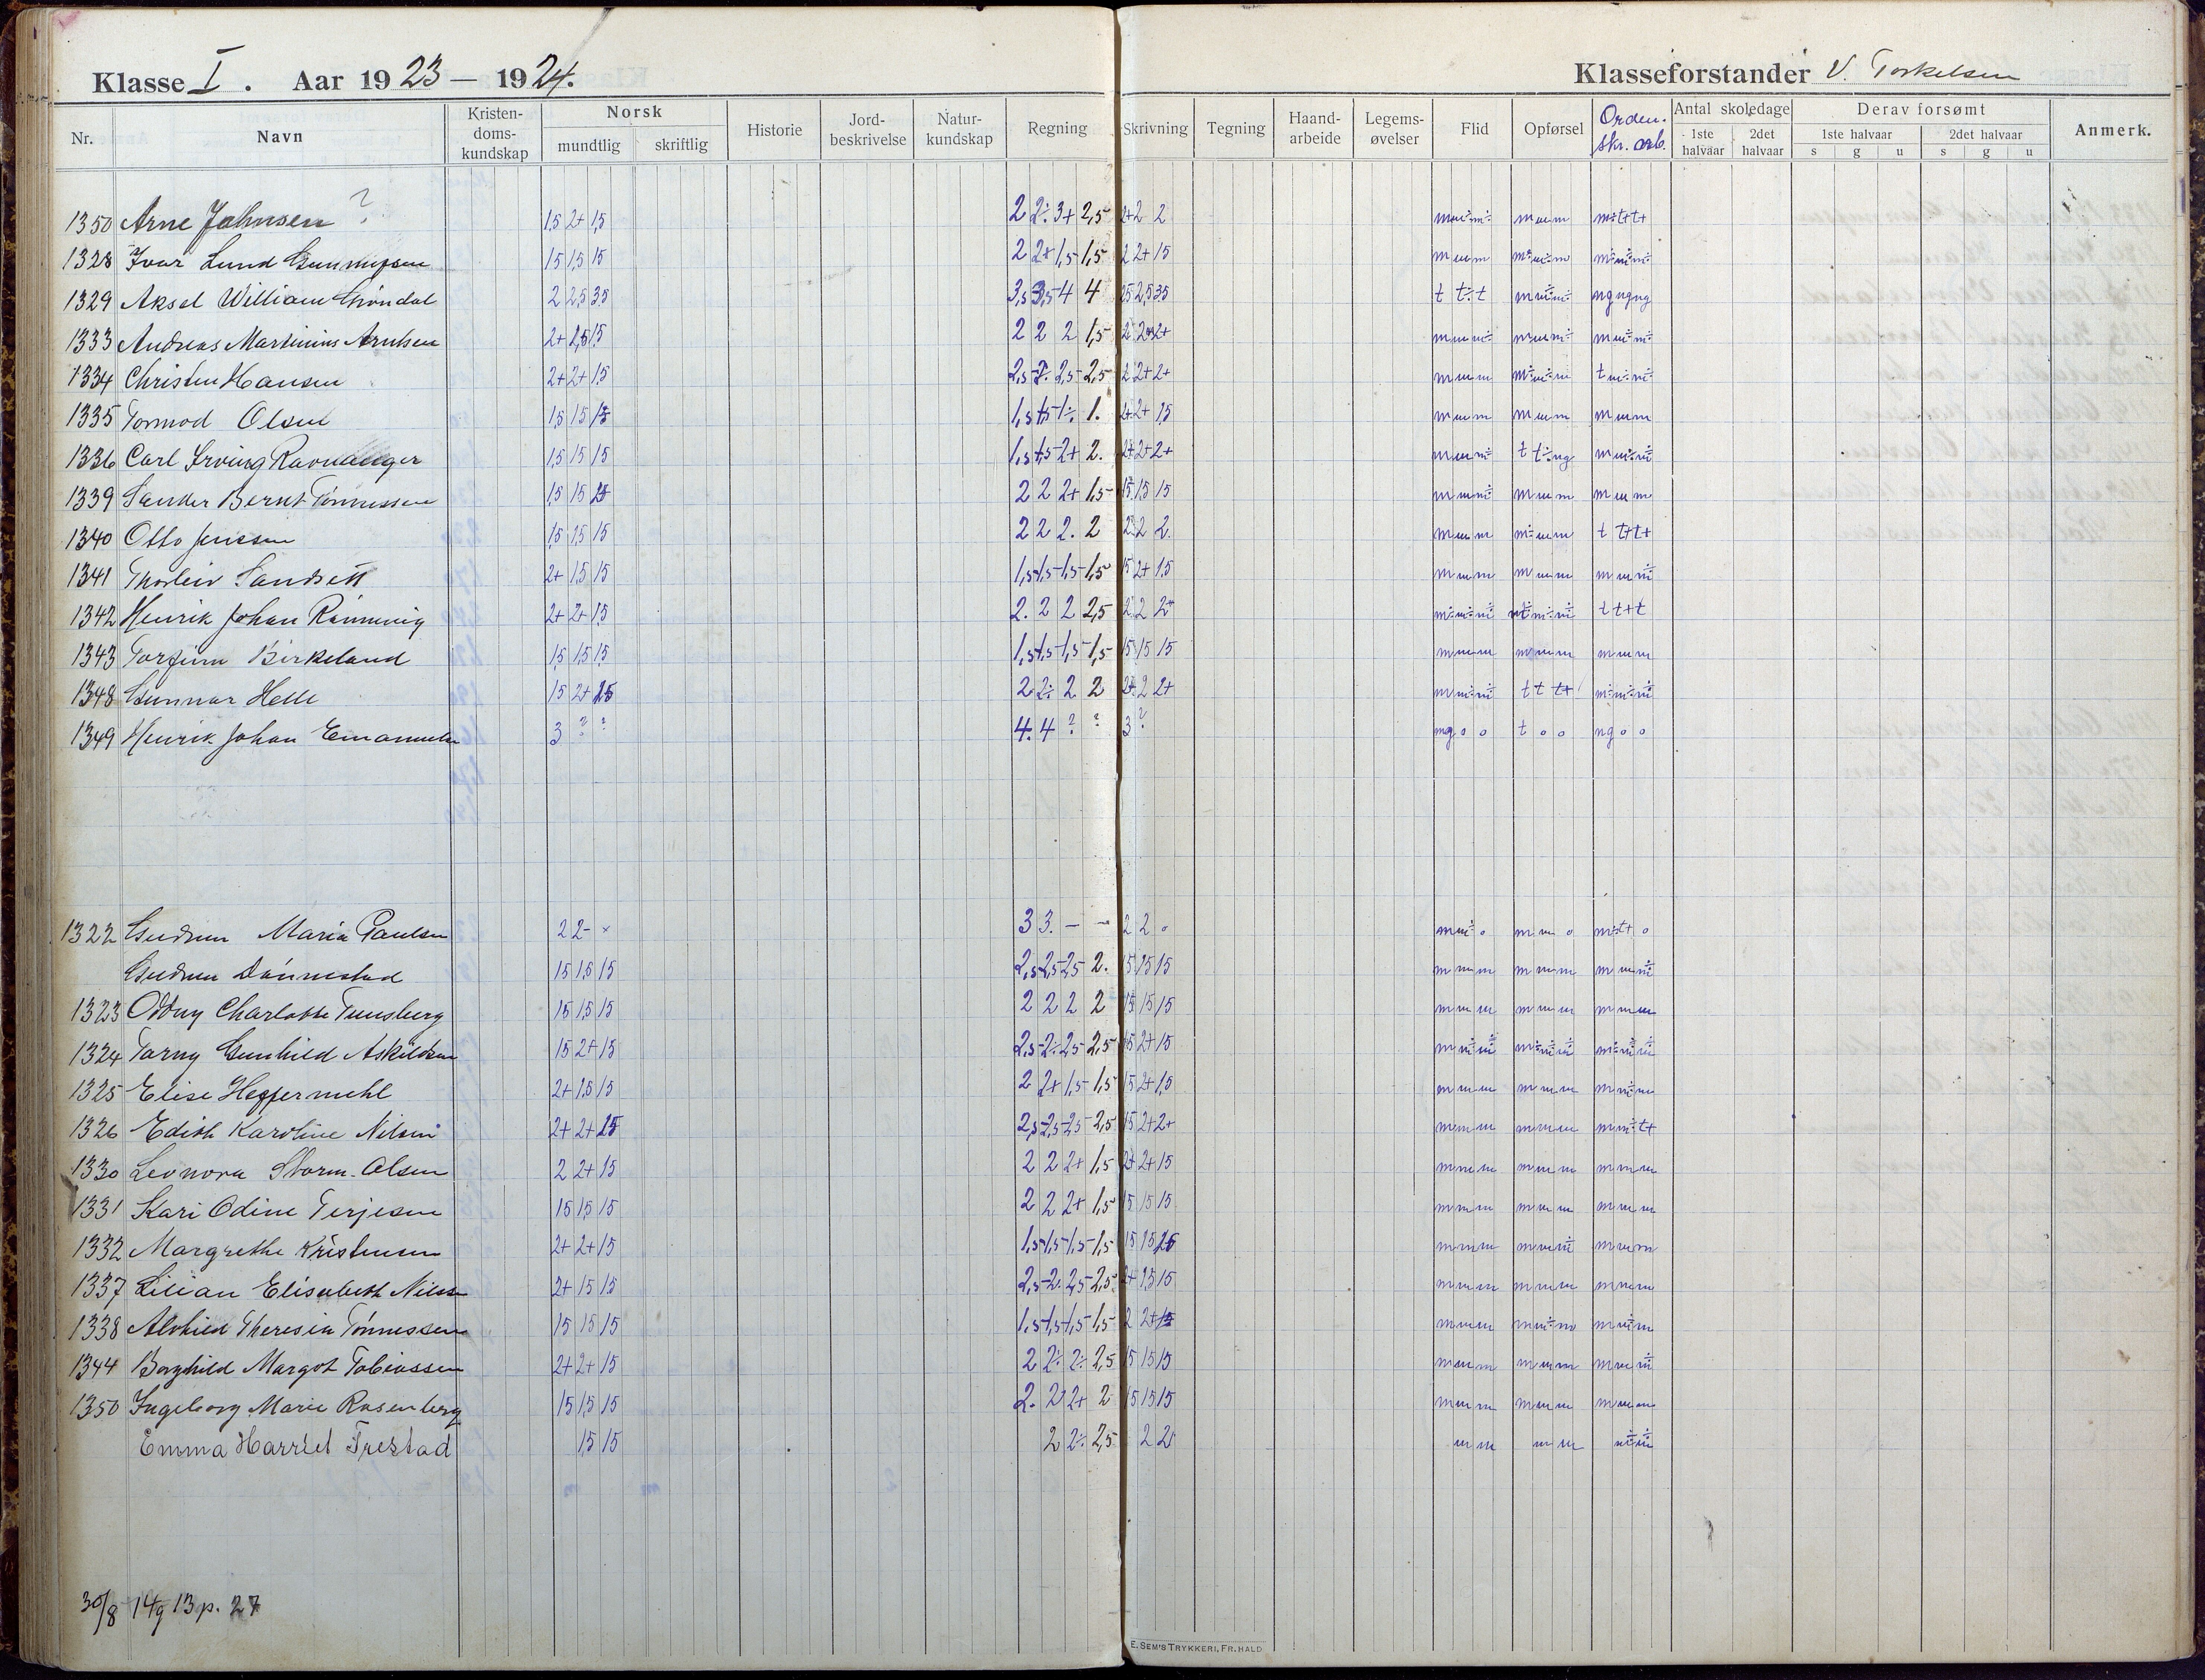 Klasse I. Aar 1923 – 1924.
Klasseforstander V. Torkelsen
Nr. Navn Kristen-doms-kundskap Norsk mundtlig skriftlig Historie Jord-beskrivelse Natur-kundskap Regning Skrivning Tegning Haand-arbeide Legems-øvelser Flid Opførsel Orden. skr. arb. Antal skoledage 1ste halvaar 2det halvaar Derav forsømt 1ste halvaar s g u 2det halvaar s g u Anmerk.
1350 Arne Johnsen ? 1,5 2+ 1,5 2 2÷ 3+ 2,5 2+ 2 2 m m÷ m÷ m m m m÷ t+ t+
1328 Ivar Lund 1,5 1,5 1,5 2 2+ 1,5 1,5 2 2+ 1,5 m m m m÷ m÷ m m÷ m÷ m÷
1329 Aksel William Grøndal 2 2,5 3,5 3,5 3,5 4 4 2,5 2,5 3,5 t t÷ t m m÷ m÷ ng ng ng
1333 Andreas Martinius Arntsen 2+ 1,5 1,5 2 2 2 1,5 2 2 2+ m m m÷ m m m÷ m m÷ m÷
1334 Christen Hansen 2+ 2+ 1,5 2,5 2÷ 2,5 2,5 2 2+ 2+ m m m m÷ m÷ m t m÷ m÷
1335 Tormod Olsen 1,5 1,5 1,5 1,5 1,5 1÷ 1. 2+ 2+ 1,5 m m m m m m m m m
1336 Carl Irving Ravnanger 1,5 1,5 1,5 1,5 1,5 2+ 2. 2+ 2+ 2+ m m m÷ t t÷ ng m m÷ m÷
1339 Sander Bernt Tønnessen 1,5 1,5 1,5 2 2 2+ 1,5 1,5 1,5 1,5 m m m÷ m m m m m m
1340 Otto Jenssen 1,5 1,5 1,5 2 2 2. 2 2 2 2 m m m m÷ m m t t+ t+
1341 Thorleiv Sandsett 2+ 1,5 1,5 1,5 1,5 1,5 1,5 1,5 2+ 1,5 m m m m m m m m m÷
1342 Henrik Johan Rønning 2+ 2+ 1,5 2. 2 2 2,5 2 2 2+ m÷ m÷ m÷ m÷ m÷ m÷ t t+ t
1343 Torfinn Birkeland 1,5 1,5 1,5 1,5 1,5 1,5 1,5 1,5 1,5 1,5 m m m m m m m m m
1348 Gunnar Helle 1,5 2+ 1,5 2 2÷ 2 2 2+ 2 2+ m m÷ m÷ t t t+ m÷ m÷ m÷
1349 Henrik Johan Emanuelsen 3 ? ? 4. 4 ? ? 3 ? mg o o t o o ng o o
1322 Gudrun Maria Paulsen 2 2 – × 3 3. – – 2 2 o m m÷ o m m o m÷ t+ o
Gudrun Dønnestad 1,5 1,5 1,5 2,5 2,5 2,5 2. 1,5 1,5 1,5 m m m m m m m m m÷
1323 Oddny Charlotte Tunsberg 1,5 1,5 1,5 2 2 2 2 1,5 1,5 1,5 m m m m m m m m m
1324 Torny Gunhild Askildsen 1,5 2+ 1,5 2,5 2÷ 2,5 2,5 1,5 2+ 1,5 m m÷ m÷ m÷ m÷ m÷ m÷ m÷ m÷
1325 Elise Heffermehl 2+ 1,5 1,5 2 2+ 1,5 1,5 1,5 2+ 1,5 m m m m m m m m÷ m
1326 Edith Karoline Nilsen 2+ 2+ 1,5 2,5 2,5 2,5 2,5 1,5 2+ 2+ m m m m m m m m÷ t+
1330 Leonora Storm-Olsen 2 2+ 1,5 2 2 2+ 1,5 2+ 2+ 1,5 m m m m m m m m m
1331 Kari Odine Terjesen 1,5 1,5 1,5 2 2 2+ 1,5 1,5 1,5 1,5 m m m m m m m m m
1332 Margrethe Kristensen 2+ 2+ 1,5 1,5 1,5 1,5 1,5 1,5 1,5 1,5 m m m m m m÷ m m m
1337 Lilian Elisabeth Nilssen 2+ 1,5 1,5 2,5 2. 2,5 2,5 2+ 1,5 1,5 m m m m m m m m m
1338 Alvhild Theresia Tønnessen 1,5 1,5 1,5 1,5 1,5 1,5 1,5 2 2+ 1,5 m m m m m÷ m m m÷ m
1344 Borghild Margot Tobiassen 2+ 2+ 1,5 2 2÷ 2÷ 2,5 1,5 1,5 1,5 m m m m m m m m m÷
1350 Ingeborg Marie Rosenberg 1,5 1,5 1,5 2. 2 2+ 2 1,5 1,5 1,5 m m m m m m m m m
Emma Harriet Trestad 1,5 1,5 2 2÷ 2,5 2 2 m m m m m÷ m÷
30/8 14g 13p. 27
E. SEM'S TRYKKERI, FR.HALD